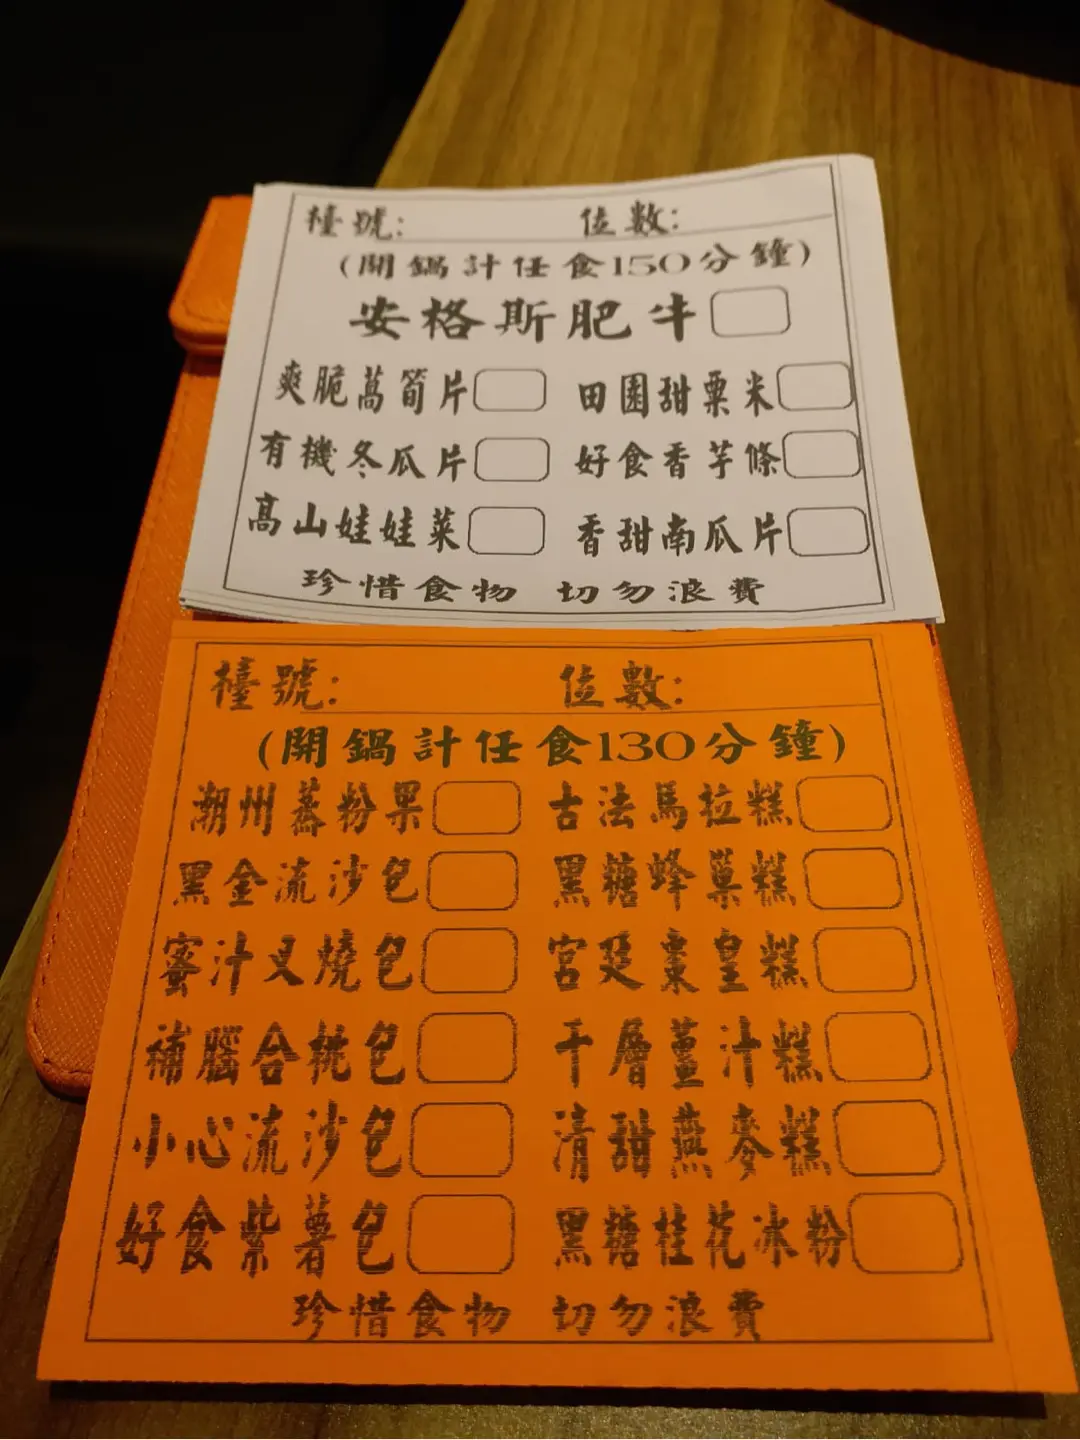 檯號: 位數:
(開鍋計任食150分鐘)
安格斯肥牛
爽脆萵筍片 田園甜粟米
有機冬瓜片 好食香芋條
高山娃娃菜 香甜南瓜片
珍惜食物 切勿浪費
檯號: 位數:
(開鍋計任食130分鐘)
潮州蒸粉果 古法馬拉糕
黑金流沙包 黑糖蜂巢糕
蜜汁叉燒包 宮廷棗皇糕
補腦合桃包 千層薑汁糕
小心流沙包 清甜燕麥糕
好食紫薯包 黑糖桂花冰粉
珍惜食物 切勿浪費